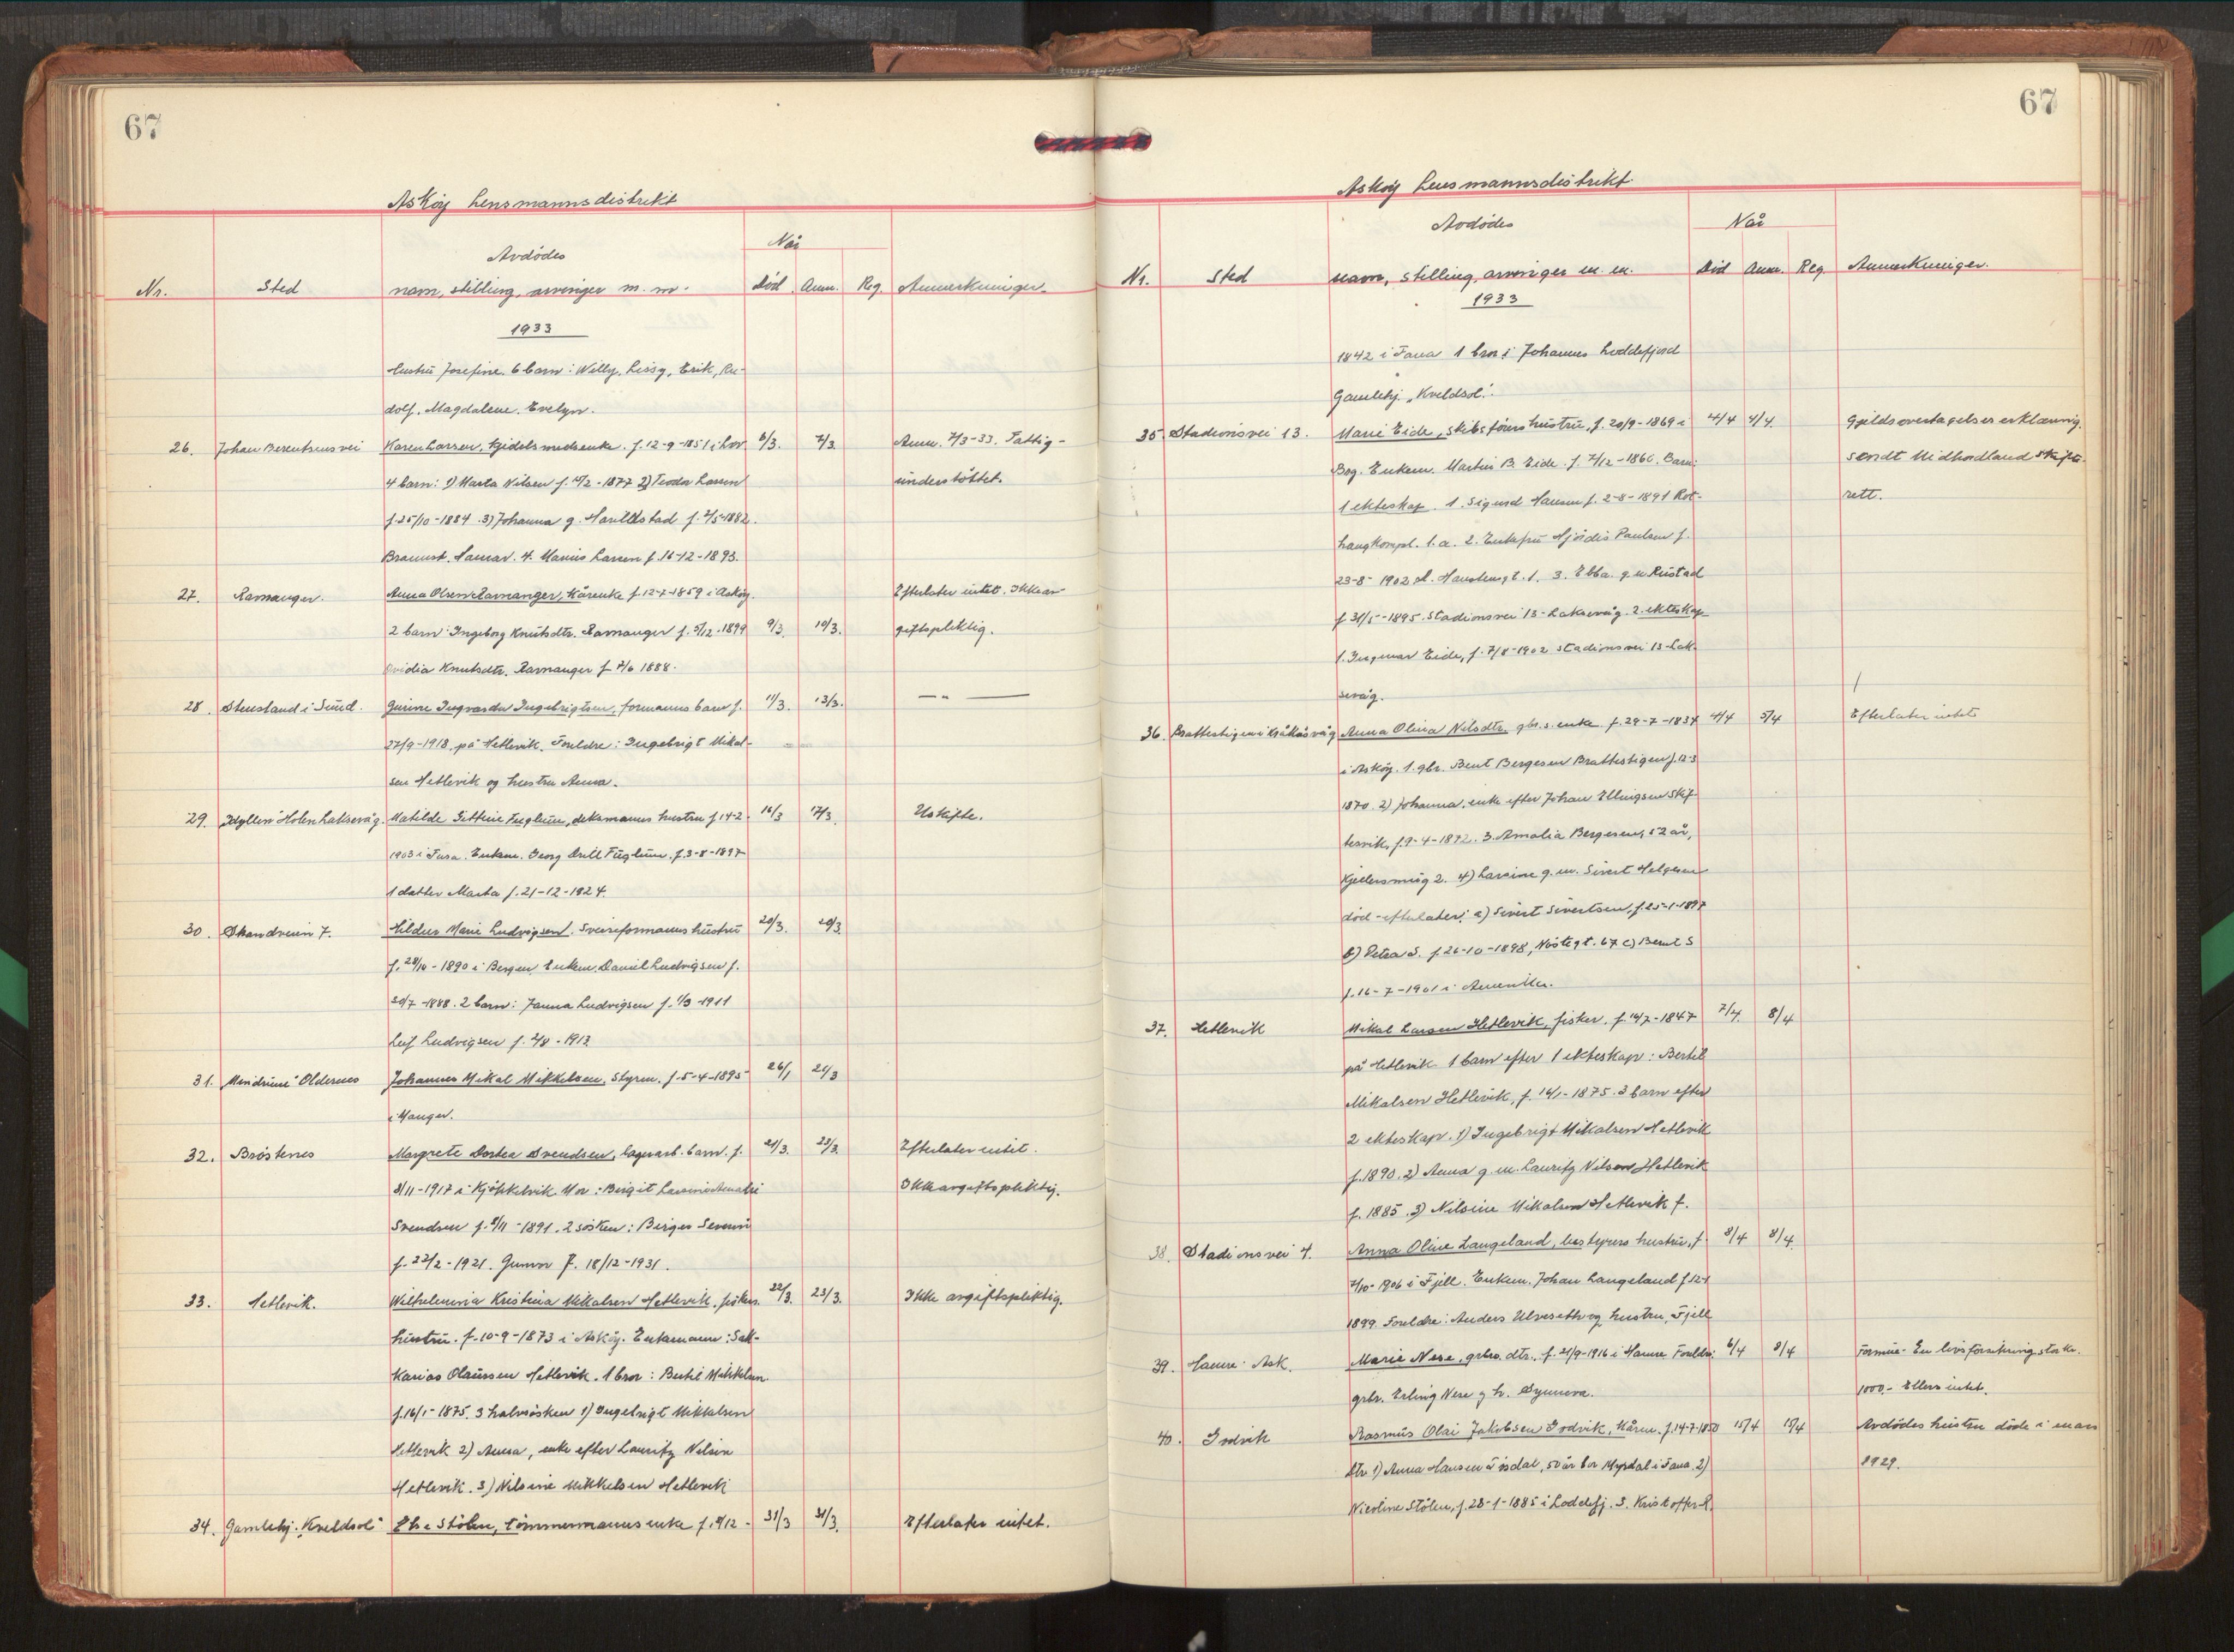 67
Askøy Lensmannsdistrikt
Når
Avdödes
Nr. Sted navn, stilling, arvinger m. m. Död Anm. Reg. Anmerkninger.
1933
Hustru Josefine. 6 barn: Willy, Lissy, Erik, Ru-
dolf, Magdalene, Evelyn.
26. Johan Berentsens vei Karen Larsen, f. 12-9-1851 i 6/3. 7/3 Anm. 7/3-33. Fattig-
4 barn: 1) Marta Nilsen f. 1877 2) Teodor Larsen understöttet.
f. 25/10-1884. 3) Johanna g. f. 2/5-1882.
4. Marius Larsen f. 16-12-1893.
27. Ramanger. Anna Olsen Ramanger, kårenke f. 12-7-1859 i Askøy. Efterlater intet. Ikke av-
2 barn: Ingeborg Knutsdtr. Ramanger f. 5/12-1899 9/3. 10/3. giftspliktig.
Knutsdtr. Ramanger f. 7/6 1888.
28. i Sund. Gurine Ingvarda Ingebrigtsen, formanns barn f. 11/3. 13/3. — " —
27/9-1918, på Hetlevik. Foreldre: Ingebrigt Mikal-
sen Hetlevik og hustru Anna.
29. Idyllen Holen Laksevåg. Matilde Fuglum, hustru f. 14-2- 16/3 17/3. Uskifte.
1903 i Fusa. Enkem. Georg Fuglum, f. 3-8-1897
1 datter Marta f. 21-12-1924.
30. Strandveien 7. Hildur Marie Ludvigsen, hustru 20/3. 20/3
f. 28/10-1890 i Bergen. Enkem. Daniel Ludvigsen f.
30/7-1888. 2 barn: Janna Ludvigsen f. 1/3-1911
Leif Ludvigsen f. 2/8-1913
31. Oldernes Johannes Mikal Mikkelsen, Styrm. f. 5-4-1895 26/1 21/3
i Manger.
32. Bröstenes Margrete Dortea Svendsen, lagerarb. barn. f. 21/3. 23/3. Efterlater intet.
3/11-1917 i Kjökkelvik. Mor: Birgit Svendsen Ikke avgiftspliktig.
Svendsen f. 5/11-1891. 2 sösken: Birger Severin
f. 22/2-1921. Gunvor f. 18/12-1931.
33. Hetlevik. Wilhelmina Kristina Mikalsen Hetlevik, fiskers 22/3. 23/3. Ikke avgiftspliktig.
hustru. f. 10-9-1873 i Askøy. Enkemann: Sak-
karias Olaussen Hetlevik. 1 bror: Bertel Mikkelsen.
f. 16/1-1875. 3 halvsösken 1) Ingebrigt Mikkalsen
Hetlevik 2) Anna, enke efter Lauritz Nilsen
Hetlevik. 3) Nilsine Mikkelsen Hetlevik
34. Gamlehj. "Kveldsol" Stölen, tömmermanns enke f. 31/3 31/3. Efterlater intet.
67
Askøy Lensmannsdistrikt
Avdödes Når
Nr. Sted navn, stilling, arvinger m. m. Död Anm. Reg. Anmerkninger.
1933
1842 i Fana 1 bror: Johannes Loddefjord
Gamlehj. "Kveldsol".
35. Stadionsvei 13. Marie Eide, skibsförers hustru, f. 20/9-1869 i 4/4 4/4 Gjeldsovertagelseserklæring
Enkem. Martin B. Eide. f. 7/12-1860. Barn: sendt Midhordland skifte-
1 ekteskap. 1. Sigurd Hansen f. 2-8-1891 Rot- rett.
haugkompl. 1.a. 2. Enkefru Hjördis Paulsen f.
23-8-1902. 3. Ebba g. m. Rustad
f 31/5-1895. Stadionsvei 13 Laksevåg. 2. ekteskap
1. Ingmar Eide, f. 7/8-1902 Stadionsvei 13 Lak-
sevåg.
36. Brattestigen i Kråkåsvåg Anna Olina Nilsdtr. gbr.s enke f. 29-7-1834 4/4 5/4 Efterlater intet
i Askøy. 1. gbr. Bent Bergesen Brattestigen f. 12-3
1870. 2) Johanna, enke efter Johan Ellingsen Skif-
tesvik, f. 9-4-1872. 3. Amalia Bergesen, 52 år,
Kjellersmug 2. 4) Larsine g. m. Sivert Helgesen
död - efterlater: a) Sivert Sivertsen, f. 25-1-1897
b) Petra S. f. 26-10-1898, Nöstegt. 67 c) Bernt S
f. 16-7-1901 i Amerika.
37. Hetlevik Mikal Larsen Hetlevik, fisker. f. 14/7-1847 7/4. 8/4
på Hetlevik 1 barn efter 1 ekteskap: Bertel
Mikalsen Hetlevik, f. 16/1-1875. 3 barn efter
2 ekteskap. 1) Ingebrigt Mikalsen Hetlevik
f. 1890. 2) Anna g. m. Lauritz Nilsen Hetlevik
f. 1885. 3) Nilsine Mikalsen Hetlevik f.
38. Stadionsvei 4. Anna Oline Langeland, bestyrers hustru, f. 8/4 8/4
7/10-1906 i Fjell. Enkem. Johan Langeland f. 12-1
1899. Foreldre: Anders Ulveseth og hustru, Fjell
39. Hamre Ask. Marie Nese, grbr. dtr., f. 21/9-1916 i Hamre Foreldre: 6/4 8/4 Formue. En livsforsikring stor kr.
grbr. Erling Nese g h. Synneva. 1000.- Ellers intet.
40. Godvik Rasmus Olai Jakobsen Godvik, kårm. f. 14-7-1850 15/4 15/4 Avdödes hustru döde i mars
1) Anna Hansen 50 år bor i Fana. 2) 1929.
Nicoline Stölen, f. 28-1-1885 i Loddefj. 3. Kristoffer R.